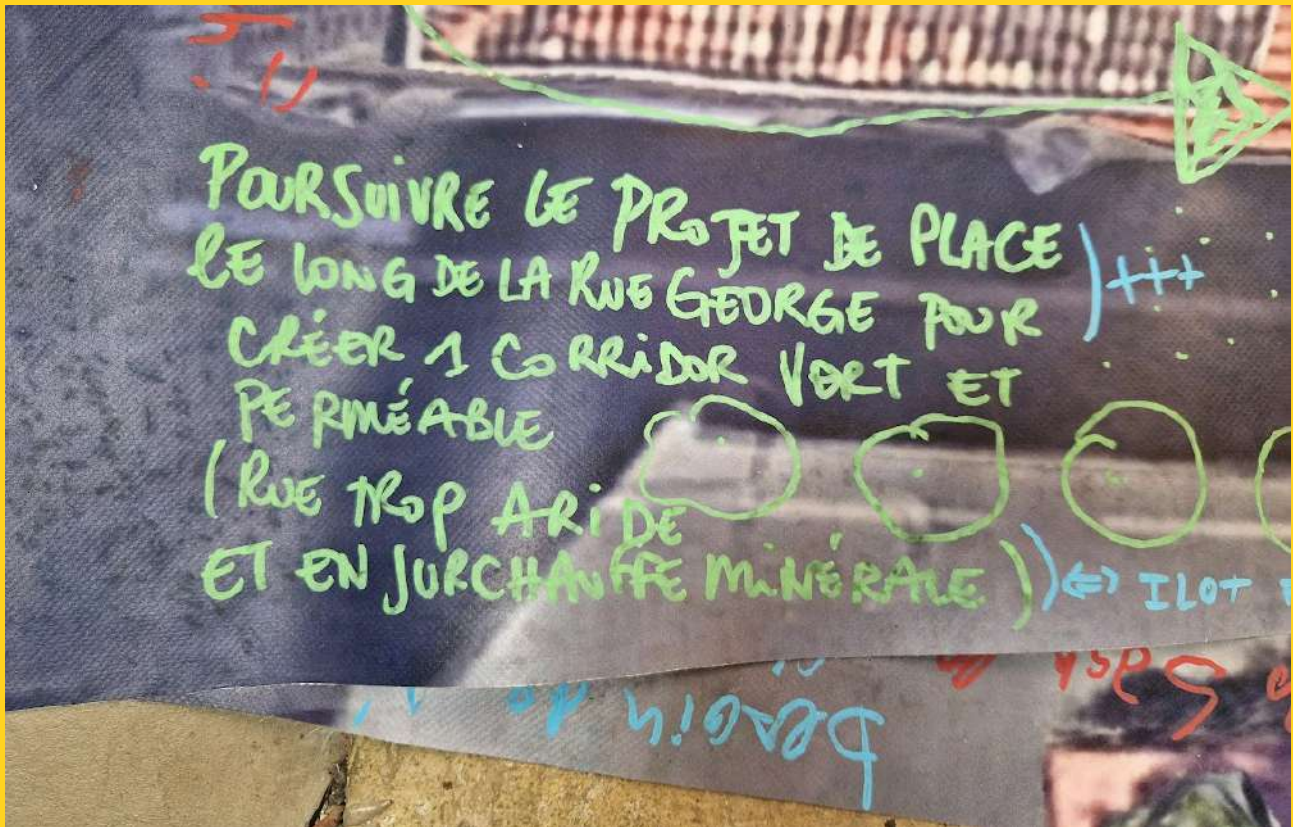 POURSUIVRE LE PROJET DE PLACE
LE LONG DE LA RUE GEORGE POUR )+++
CRÉER 1 CORRIDOR VERT ET
PERMÉABLE
(RUE TROP ARIDE
ET EN SURCHAUFFE MINÉRALE)) <=> ILOT